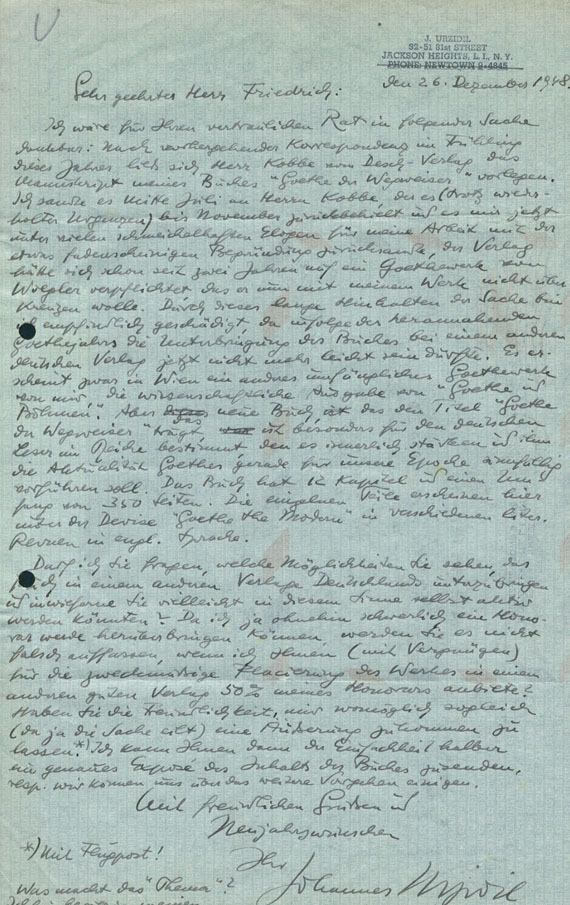 J. URZIDIL
82-51 81st STREET
JACKSON HEIGHTS, L. I., N. Y.
PHONE: NEWTOWN 9-4845
den 26. Dezember 1948.
Sehr geehrter Herr Friedrich:
Ich wäre für Ihren vertraulichen Rat in folgender Sache
dankbar: Nach vorhergehender Korrespondenz im Frühling
dieses Jahres liess sich Herr Kobbe vom Desch-Verlag das
Manuskript meines Buches "Goethe der Wegweiser" vorlegen.
Ich sandte es Mitte Juli an Herrn Kobbe, der es (trotz wieder-
holter Urgenzen) bis November zurückbehielt und es mir jetzt
unter vielen schmeichelhaften Elogen für meine Arbeit mit der
etwas fadenscheinigen Begründung zurücksandte, der Verlag
hätte sich schon seit zwei Jahren auf ein Goethewerk von
verpflichtet das er nun mit meinem Werk nicht über-
kreuzen wolle. Durch dieses lange Hinhalten der Sache bin
ich empfindlich geschädigt, da infolge des herannahenden
Goethejahrs die Unterbringung des Buches bei einem anderen
deutschen Verlag jetzt nicht mehr leicht sein dürfte. Es er-
scheint zwar in Wien ein andres umfängliches Goethewerk
von mir, die wissenschaftliche Ausgabe von "Goethe in
Böhmen". Aber das neue Buch ist das den Titel "Goethe
der Wegweiser" trägt, ist besonders für den deutschen
Leser im Reiche bestimmt, den es innerlich stärken und ihm
die Aktualität Goethes gerade für unsere Epoche sinnfällig
vorführen soll. Das Buch hat 12 Kapitel und einen Um-
fang von 350 Seiten. Die einzelnen Teile erscheinen hier
unter der Devise "Goethe the Modern" in verschiedenen liter.
Revuen in engl. Sprache.
Darf ich Sie fragen, welche Möglichkeiten Sie sehen, das
Buch in einem andren Verlage Deutschlands unterzubringen
und inwieferne Sie vielleicht in diesem Sinne selbst aktiv
werden könnten? Da ich ja ohnehin schwerlich ein Hono-
rar werde herüberbringen können, werden Sie es nicht
falsch auffassen, wenn ich Ihnen (mit Vergnügen)
für die zweckmässige Placierung des Werkes in einem
anderen guten Verlag 50% meines Honorars anbiete?
Haben Sie die Freundlichkeit, mir womöglich sogleich
(da ja die Sache eilt) eine Äusserung zukommen zu
lassen.*) Ich kann Ihnen dann der Einfachheit halber
ein genaues Exposé des Inhalts des Buches zusenden,
resp. wir können uns über das weitere Vorgehen einigen.
Mit freundlichen Grüssen und
Neujahrswünschen
*) Mit Flugpost!
Ihr
Johannes Urzidil
Was macht das "Thema"?